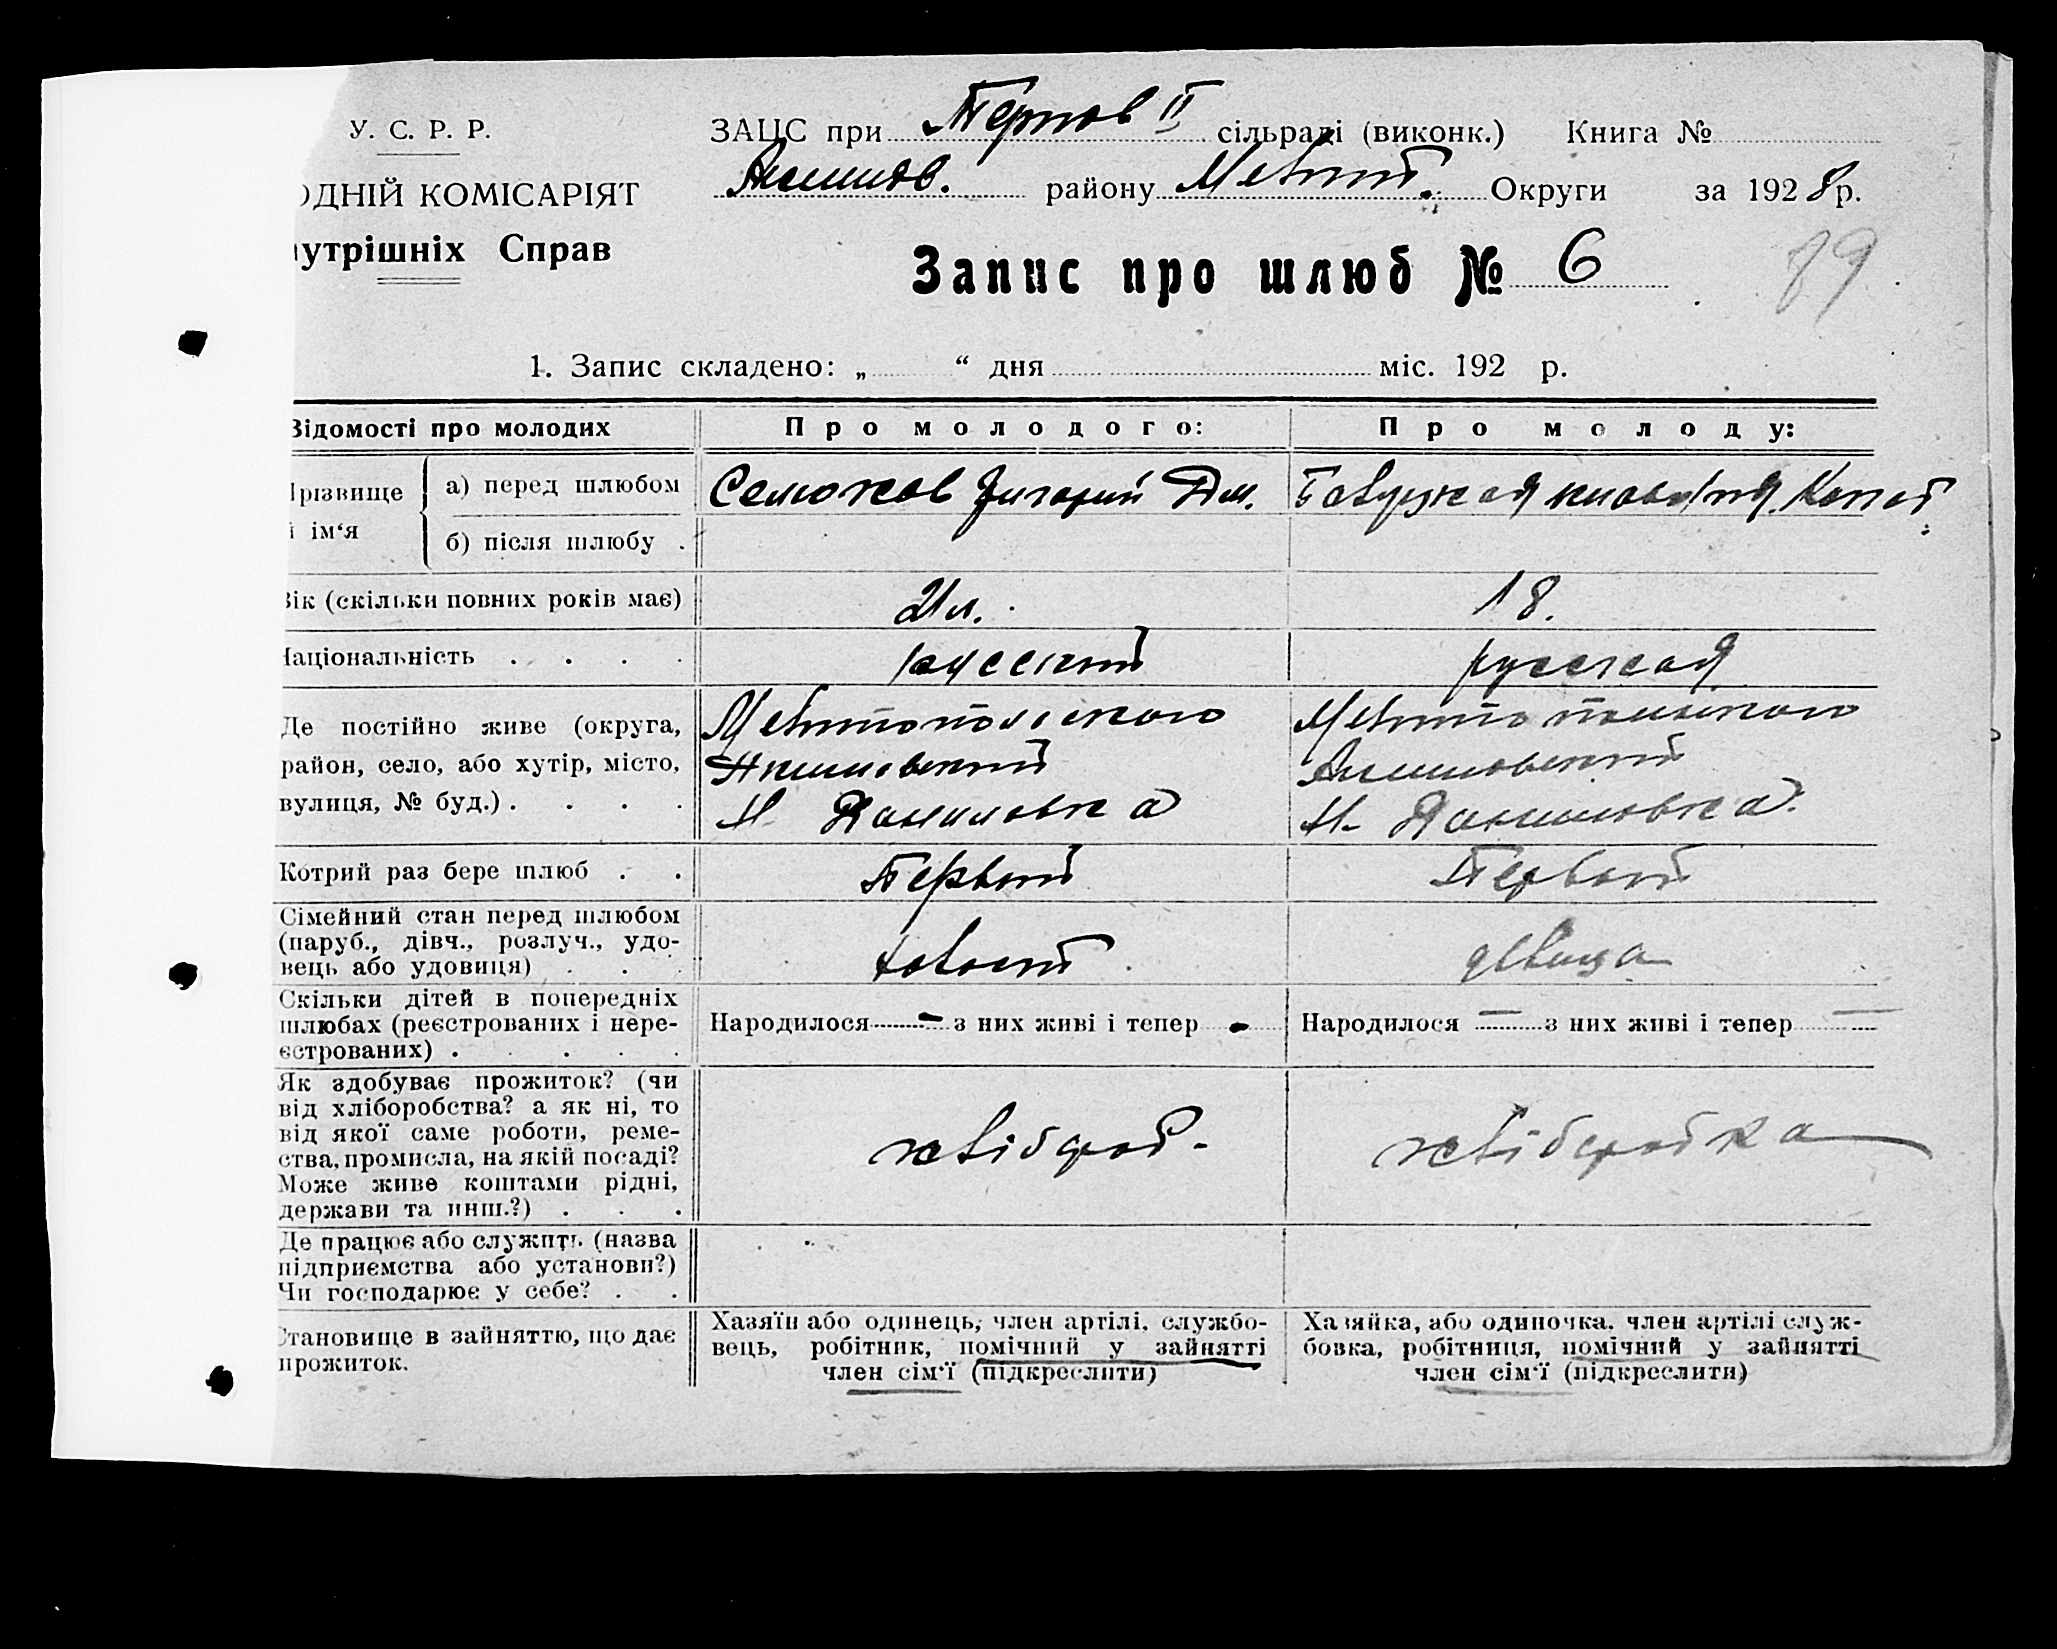 У. С. Р. Р.
ОДНІЙ КОМІСАРІЯТ
нутрішніх Справ
ЗАЦС при Терпов II сільраді (виконк.) Книга №
Акимов. району Меліт. Округи за 1928 р.
Запис про шлюб № 6
79
1. Запис складено: „ “ дня міс. 192 р.
Відомості про молодих
Про молодого:
Про молоду:
Прізвище й ім‘я
а) перед шлюбом
Григорий Дм.
б) після шлюбу .
Вік (скільки повних років має)
21 л.
18.
Національність . . . .
русский
русская
Де постійно живе (округа, район, село, або хутір, місто, вулиця, № буд.) . . . .
Мелитопольского
Акимовский
Н Даниловка
Мелитопольского
Акимовский
Н. Даниловка.
Котрий раз бере шлюб . .
Первый
Первый
Сімейний стан перед шлюбом
(паруб., дівч., розлуч., удо-
вець або удовиця) . . .
девица
Скільки дітей в попередніх
шлюбах (реєстрованих і нере-
єстрованих) . . . . .
Народилося - з них живі і тепер -
Народилося — з них живі і тепер —
Як здобуває прожиток? (чи
від хліборобства? а як ні, то
від якої саме роботи, реме-
ства, промисла, на якій посаді?
Може живе коштами рідні,
держави та инш.?) . . .
хлібороб.
хліборобка
Де працює або служить (назва
підприємства або установи?)
Чи господарює у себе? . .
Становище в зайняттю, що дає
прожиток.
Хазяїн або одинець, член артілі, службо-
вець, робітник, помічний у зайнятті
член сім‘ї (підкреслити)
Хазяйка, або одиночка, член артілі служ-
бовка, робітниця, помічний у зайнятті
член сім‘ї (підкреслити)